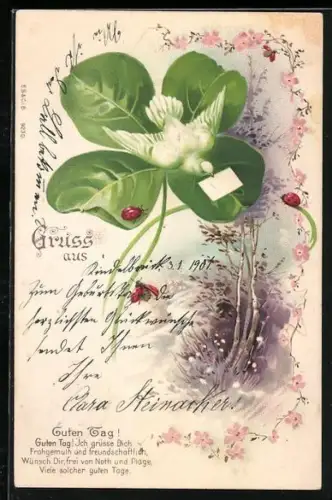 Gruss
aus
Kindelbrück 3.8 1901
Zum Geburtstage die
herzlichsten Glückwünsche
sendet Ihnen
Ihre
Clara Steinacker
Guten Tag!
Guten Tag! Ich grüsse Dich
Frohgemuth und freundschaftlich,
Wünsch Dir, frei von Noth und Plage,
Viele solcher guten Tage.